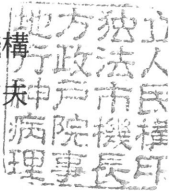 地方独立
行政法人
神戸市民
病院機構
理事長印
構